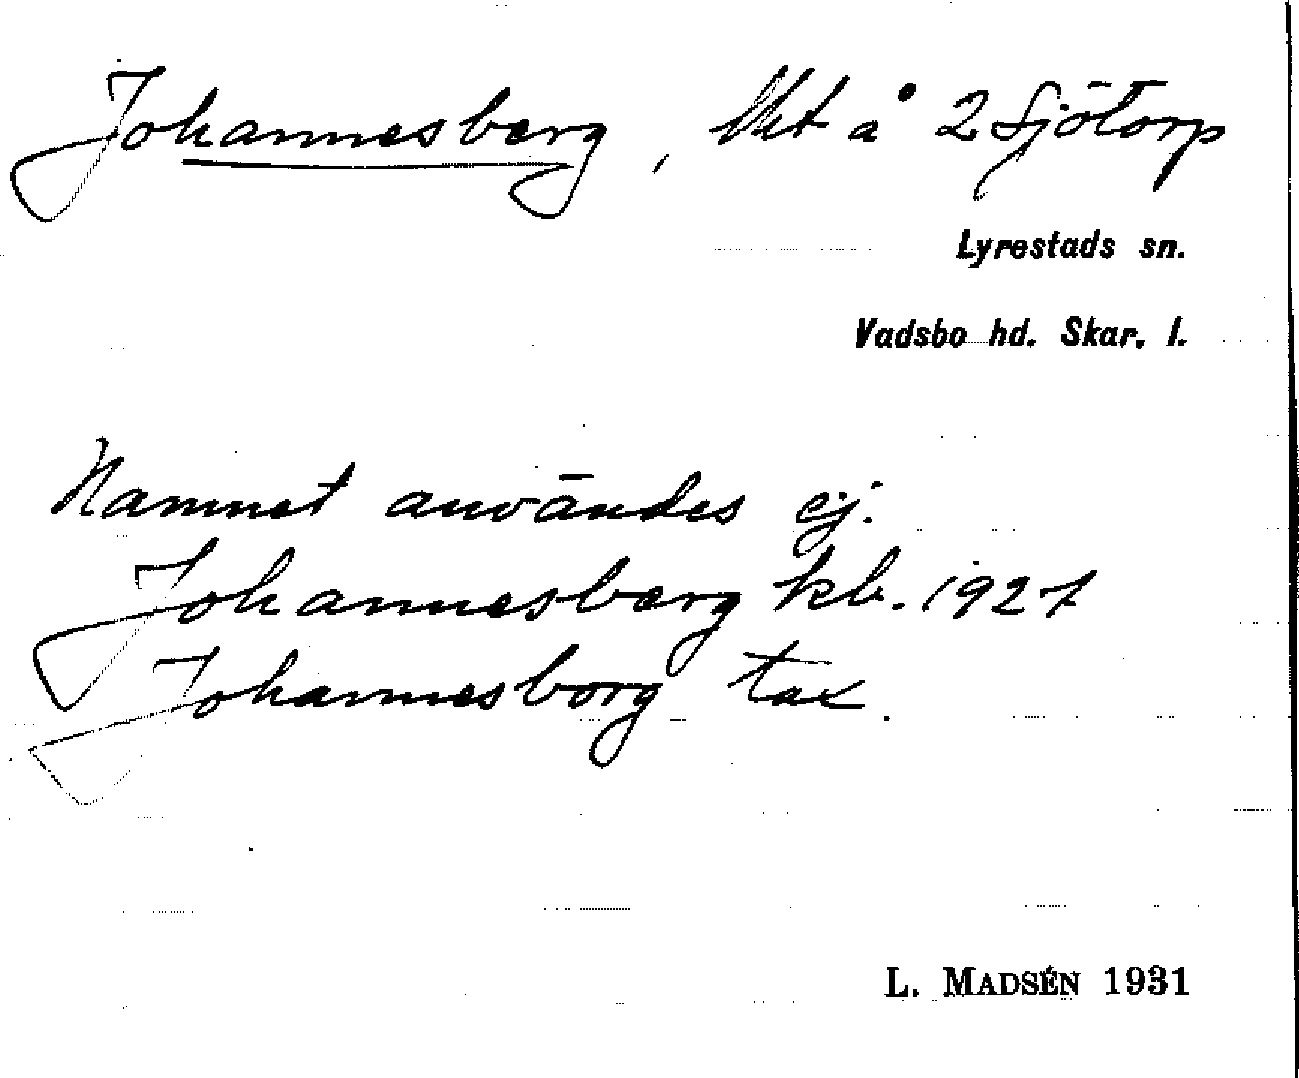 Johannesberg, lht å 2 Sjötorp
Lyrestads sn.
Vadsbo hd. Skar. l.
Namnet användes ej.
Johannesberg kb. 1927
Johannesborg tax.
L. MADSÉN 1931